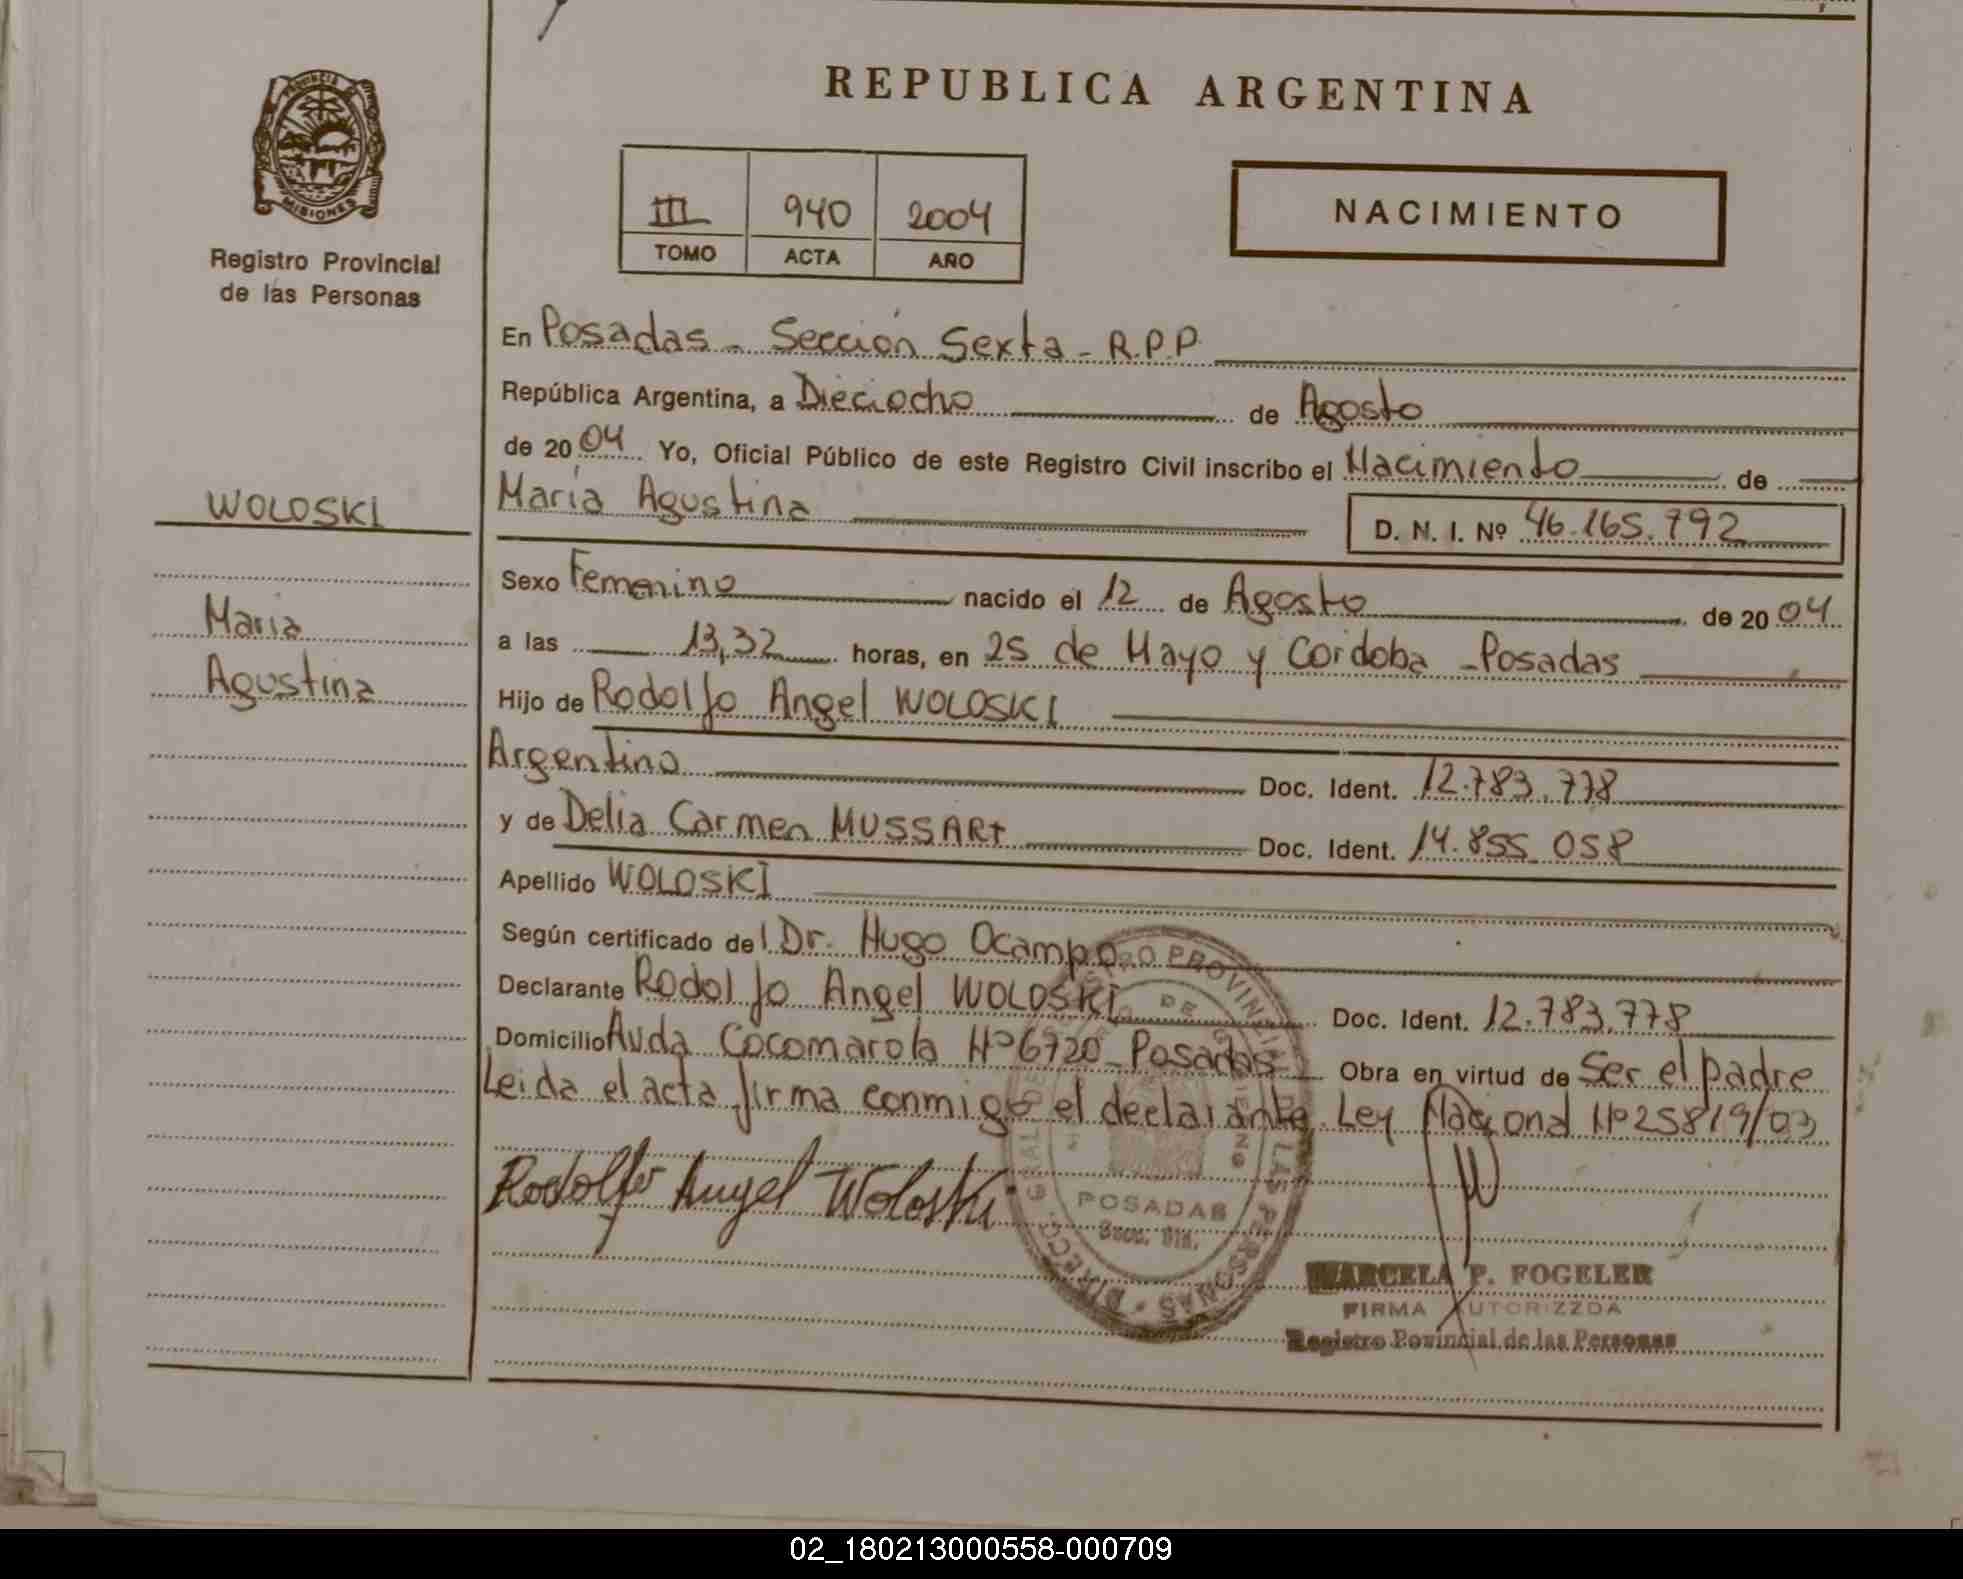 REPUBLICA ARGENTINA
PROVINCIA DE
MISIONES
Registro Provincial
de las Personas
III 940 2004
TOMO ACTA AÑO
NACIMIENTO
WOLOSKI
Maria
Agustina
En Posadas - Sección Sexta - R.P.P.
República Argentina, a Dieciocho de Agosto
de 2004 Yo, Oficial Público de este Registro Civil inscribo el Nacimiento de
María Agustina D. N. I. Nº 46.165.792
Sexo Femenino nacido el 12 de Agosto de 2004
a las 13,32 horas, en 25 de Mayo y Cordoba - Posadas
Hijo de Rodolfo Angel WOLOSKI
Argentino Doc. Ident. 12.783.778
y de Delia Carmen MUSSART Doc. Ident. 14.855.058
Apellido WOLOSKI
Según certificado del Dr. Hugo Ocampo
Declarante Rodolfo Angel WOLOSKI Doc. Ident. 12.783.778
Domicilio Avda Cocomarola Nº 6720 - Posadas Obra en virtud de Ser el padre
Leida el acta firma conmigo el declarante. Ley Nacional Nº 25819/03
Rodolfo Angel Woloski
POSADAS
MARCELA P. FOGELER
FIRMA AUTORIZZDA
Registro Povincial de las Personas
02_180213000558-000709